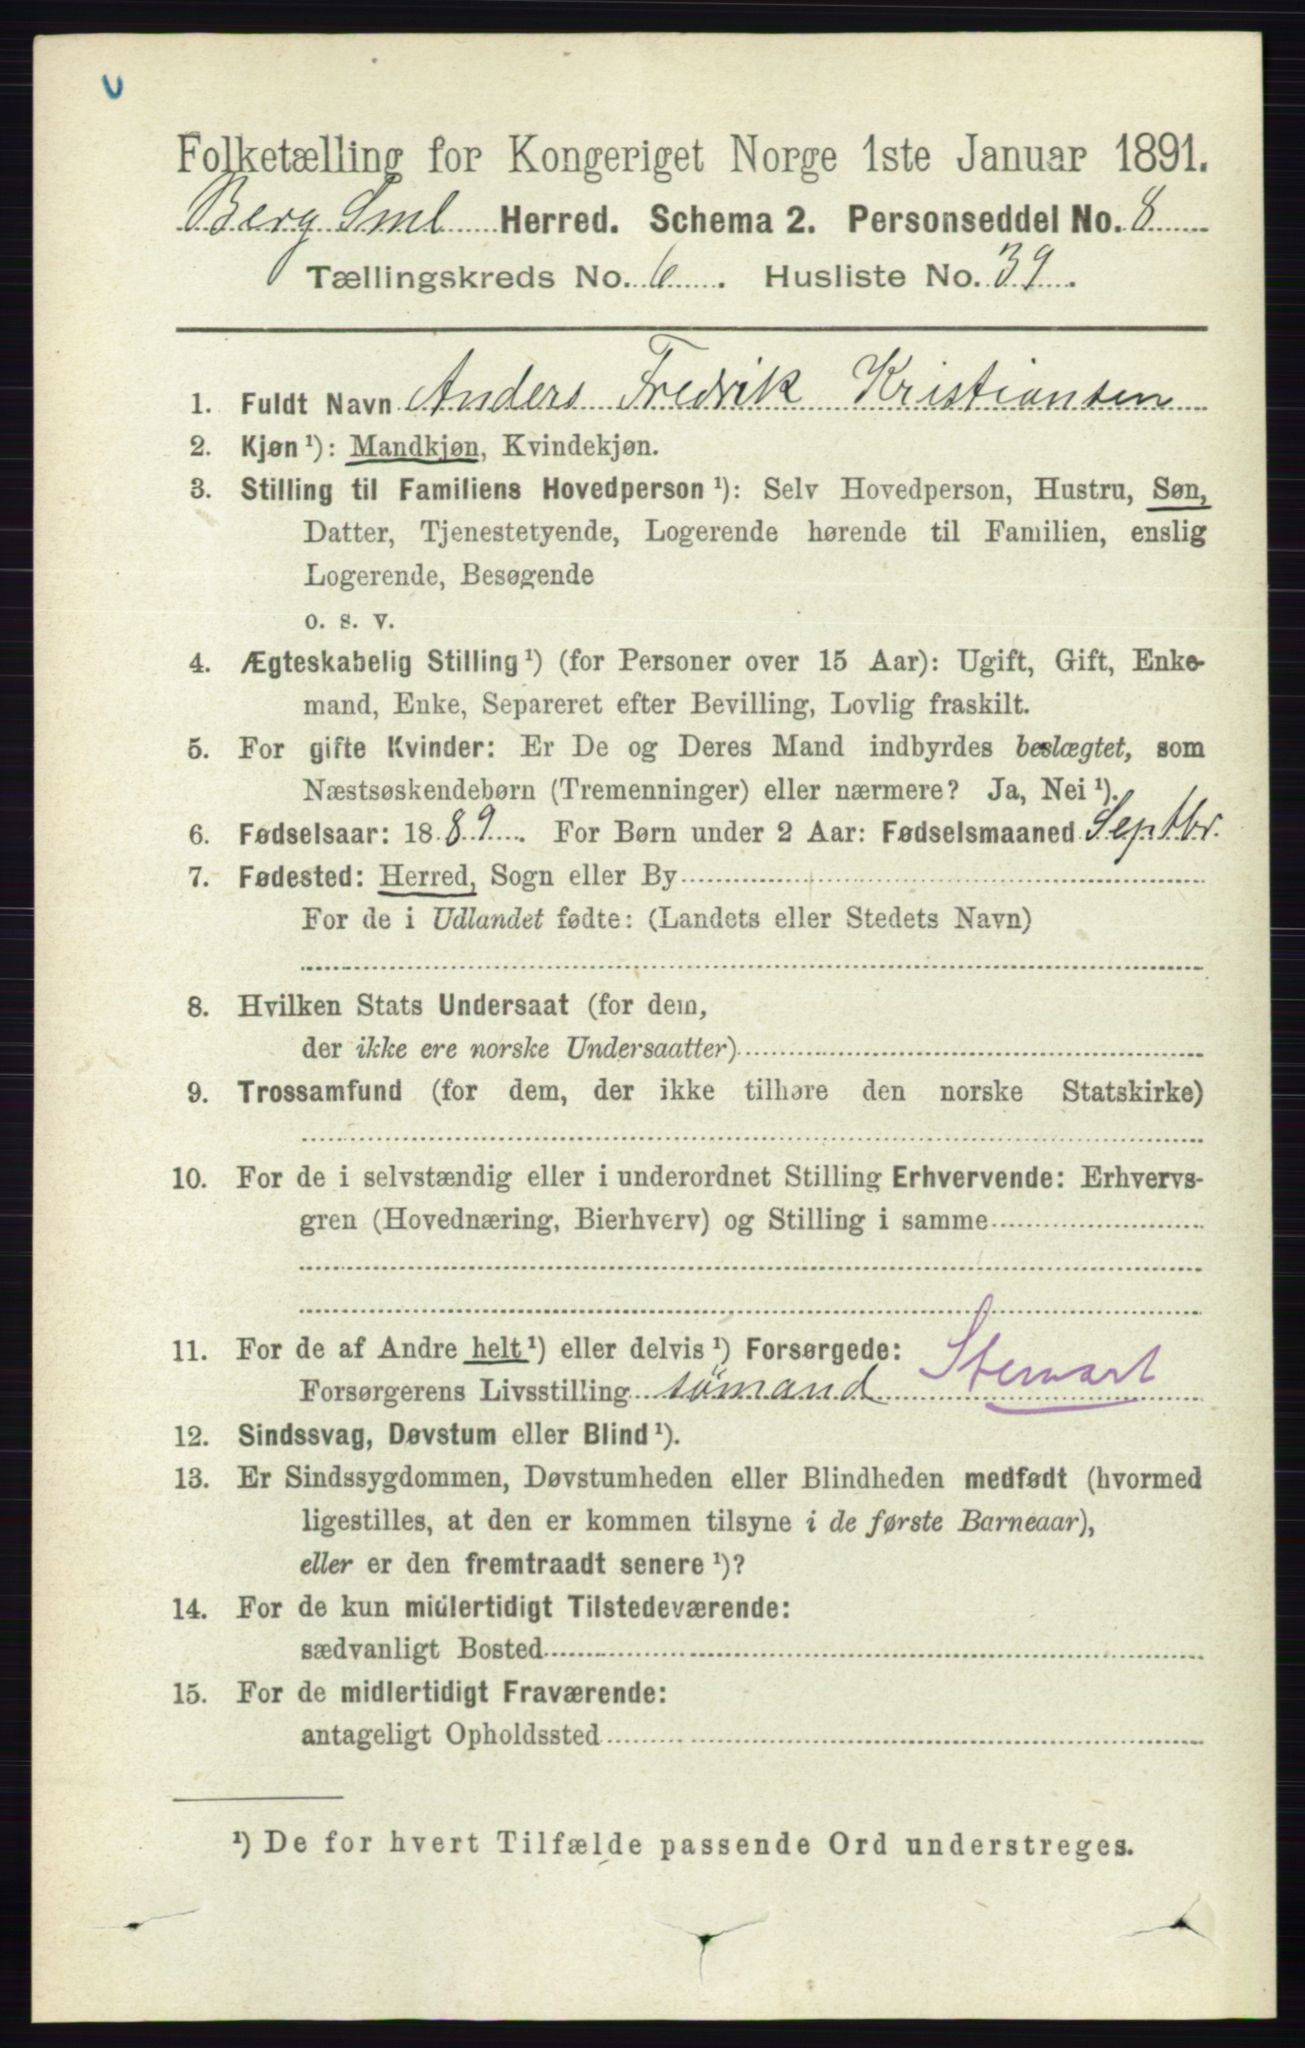 Folketælling for Kongeriget Norge 1ste Januar 1891.
Berg Sml Herred. Schema 2. Personseddel No. 8
Tællingskreds No. 6. Husliste No. 39.
1. Fuldt Navn Anders Fredrik Kristiansen
2. Kjøn ¹): Mandkjøn, Kvindekjøn.
3. Stilling til Familiens Hovedperson ¹): Selv Hovedperson, Hustru, Søn,
Datter, Tjenestetyende, Logerende hørende til Familien, enslig
Logerende, Besøgende
o. s. v.
4. Ægteskabelig Stilling ¹) (for Personer over 15 Aar): Ugift, Gift, Enke-
mand, Enke, Separeret efter Bevilling, Lovlig fraskilt.
5. For gifte Kvinder: Er De og Deres Mand indbyrdes beslægtet, som
Næstsøskendebørn (Tremenninger) eller nærmere? Ja, Nei ¹).
6. Fødselsaar: 1889. For Børn under 2 Aar: Fødselsmaaned Septbr.
7. Fødested: Herred, Sogn eller By
For de i Udlandet fødte: (Landets eller Stedets Navn)
8. Hvilken Stats Undersaat (for dem,
der ikke ere norske Undersaatter)
9. Trossamfund (for dem, der ikke tilhøre den norske Statskirke)
10. For de i selvstændig eller i underordnet Stilling Erhvervende: Erhvervs-
gren (Hovednæring, Bierhverv) og Stilling i samme
11. For de af Andre helt ¹) eller delvis ¹) Forsørgede:
Forsørgerens Livsstilling sömand Stewart
12. Sindssvag, Døvstum eller Blind ¹).
13. Er Sindssygdommen, Døvstumheden eller Blindheden medfødt (hvormed
ligestilles, at den er kommen tilsyne i de første Barneaar),
eller er den fremtraadt senere ¹)?
14. For de kun midlertidigt Tilstedeværende:
sædvanligt Bosted
15. For de midlertidigt Fraværende:
antageligt Opholdssted
¹) De for hvert Tilfælde passende Ord understreges.